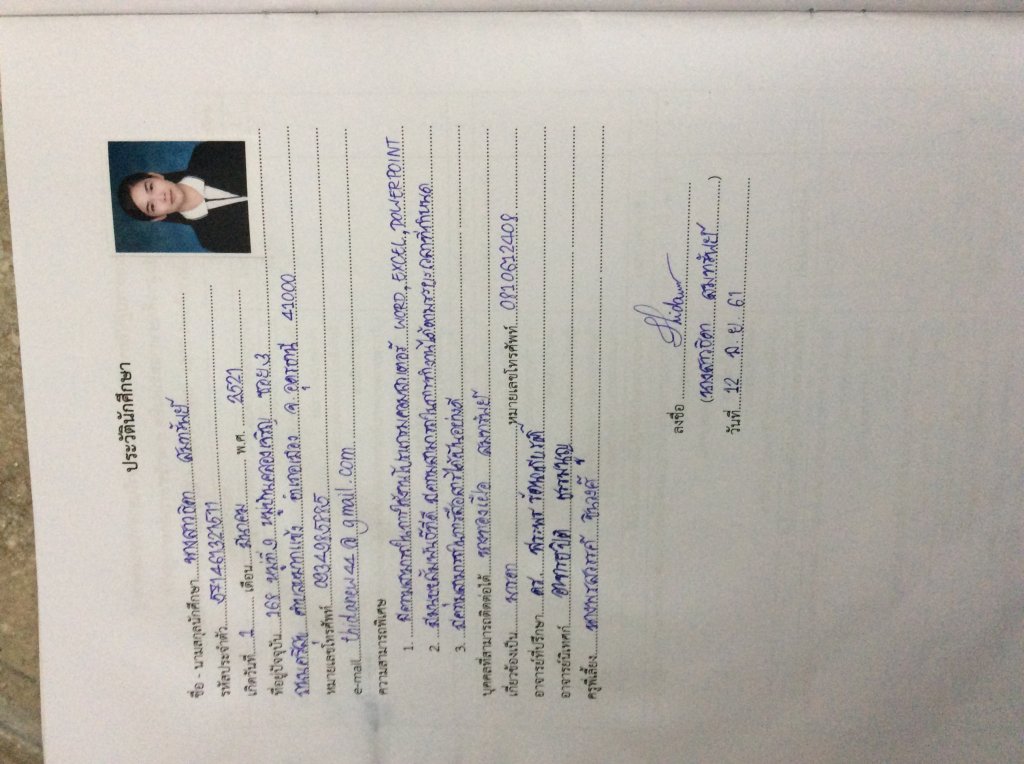 ประวัตินักศึกษา
ชื่อ - นามสกุลนักศึกษา นางสาวธิดา สมทรัพย์
รหัสประจำตัว
เกิดวันที่ 1 เดือน มีนาคม พ.ศ. 2521
ที่อยู่ปัจจุบัน 168 หมู่ที่ 9 ซอย 3
ตำบลหมูม่น อำเภอเมือง จ.อุดรธานี 41000
หมายเลขโทรศัพท์ 0934985895
e-mail thidanew44@gmail.com
ความสามารถพิเศษ
1. มีความสามารถในการใช้งานโปรแกรมคอมพิวเตอร์ WORD, EXCEL, POWERPOINT
2. มีมนุษยสัมพันธ์ที่ดี มีความสามารถในการทำงานได้ตามระยะเวลาที่กำหนด
3. มีความสามารถในการสื่อสารได้เป็นอย่างดี
บุคคลที่สามารถติดต่อได้ สมทรัพย์
เกี่ยวข้องเป็น มารดา หมายเลขโทรศัพท์ 0810612408
อาจารย์ที่ปรึกษา ดร.
อาจารย์นิเทศก์
ครูพี่เลี้ยง
ลงชื่อ Thida
(นางสาวธิดา สมทรัพย์)
วันที่ 12 มิ.ย. 61